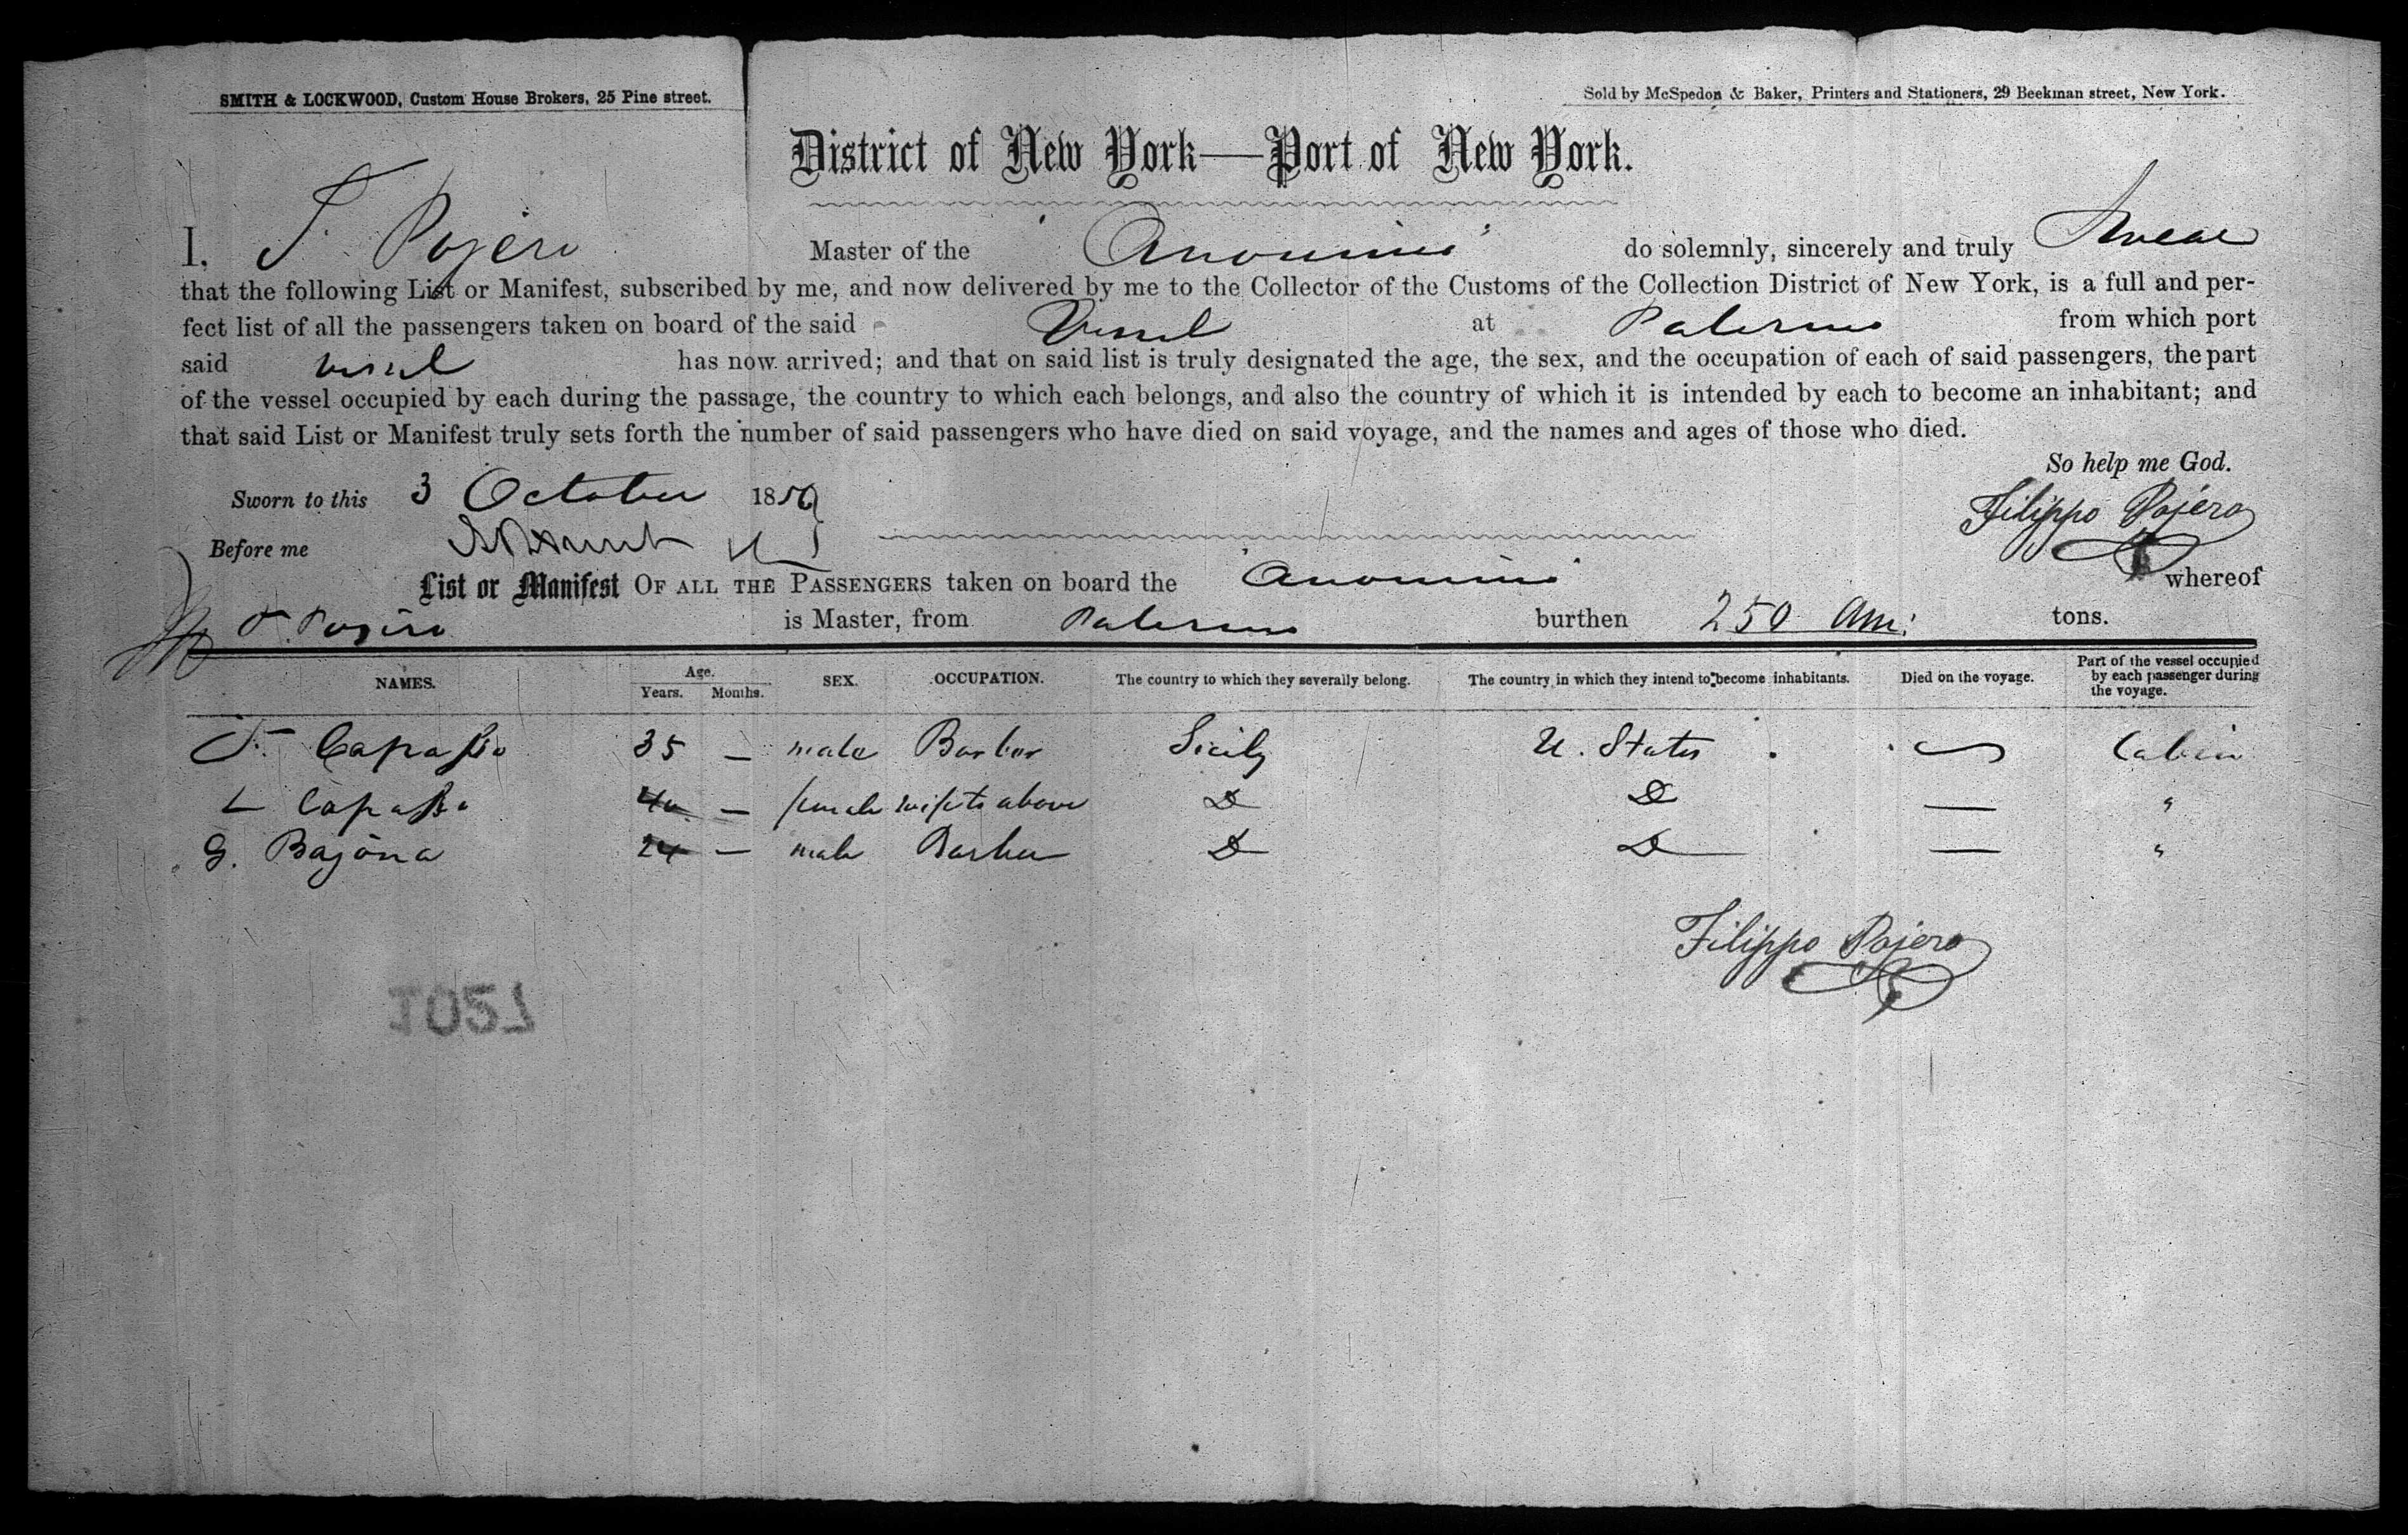 SMITH & LOCKWOOD, Custom House Brokers, 25 Pine street.
Sold by McSpedon & Baker, Printers and Stationers, 29 Beekman street, New York.
District of New York—Port of New York.
I, F. Pojero Master of the "Anonimo" do solemnly, sincerely and truly Swear
that the following List or Manifest, subscribed by me, and now delivered by me to the Collector of the Customs of the Collection District of New York, is a full and per-
fect list of all the passengers taken on board of the said Vessel at Palermo from which port
said vessel has now arrived; and that on said list is truly designated the age, the sex, and the occupation of each of said passengers, the part
of the vessel occupied by each during the passage, the country to which each belongs, and also the country of which it is intended by each to become an inhabitant; and
that said List or Manifest truly sets forth the number of said passengers who have died on said voyage, and the names and ages of those who died.
So help me God.
Sworn to this 3 October 1859
Filippo Pojero
Before me
List or Manifest OF ALL THE PASSENGERS taken on board the "Anonimo" whereof
F. Pojero is Master, from Palermo burthen 250 Am: tons.
NAMES. Age. Years. Months. SEX. OCCUPATION. The country to which they severally belong. The country in which they intend to become inhabitants. Died on the voyage. Part of the vessel occupied by each passenger during the voyage.
F. Capasso 35 — male Barber Sicily U. States — Cabin
L Capasso 40 — female wife to above Do Do — "
G. Bajona 24 — male Barber Do Do — "
Filippo Pojero
1051